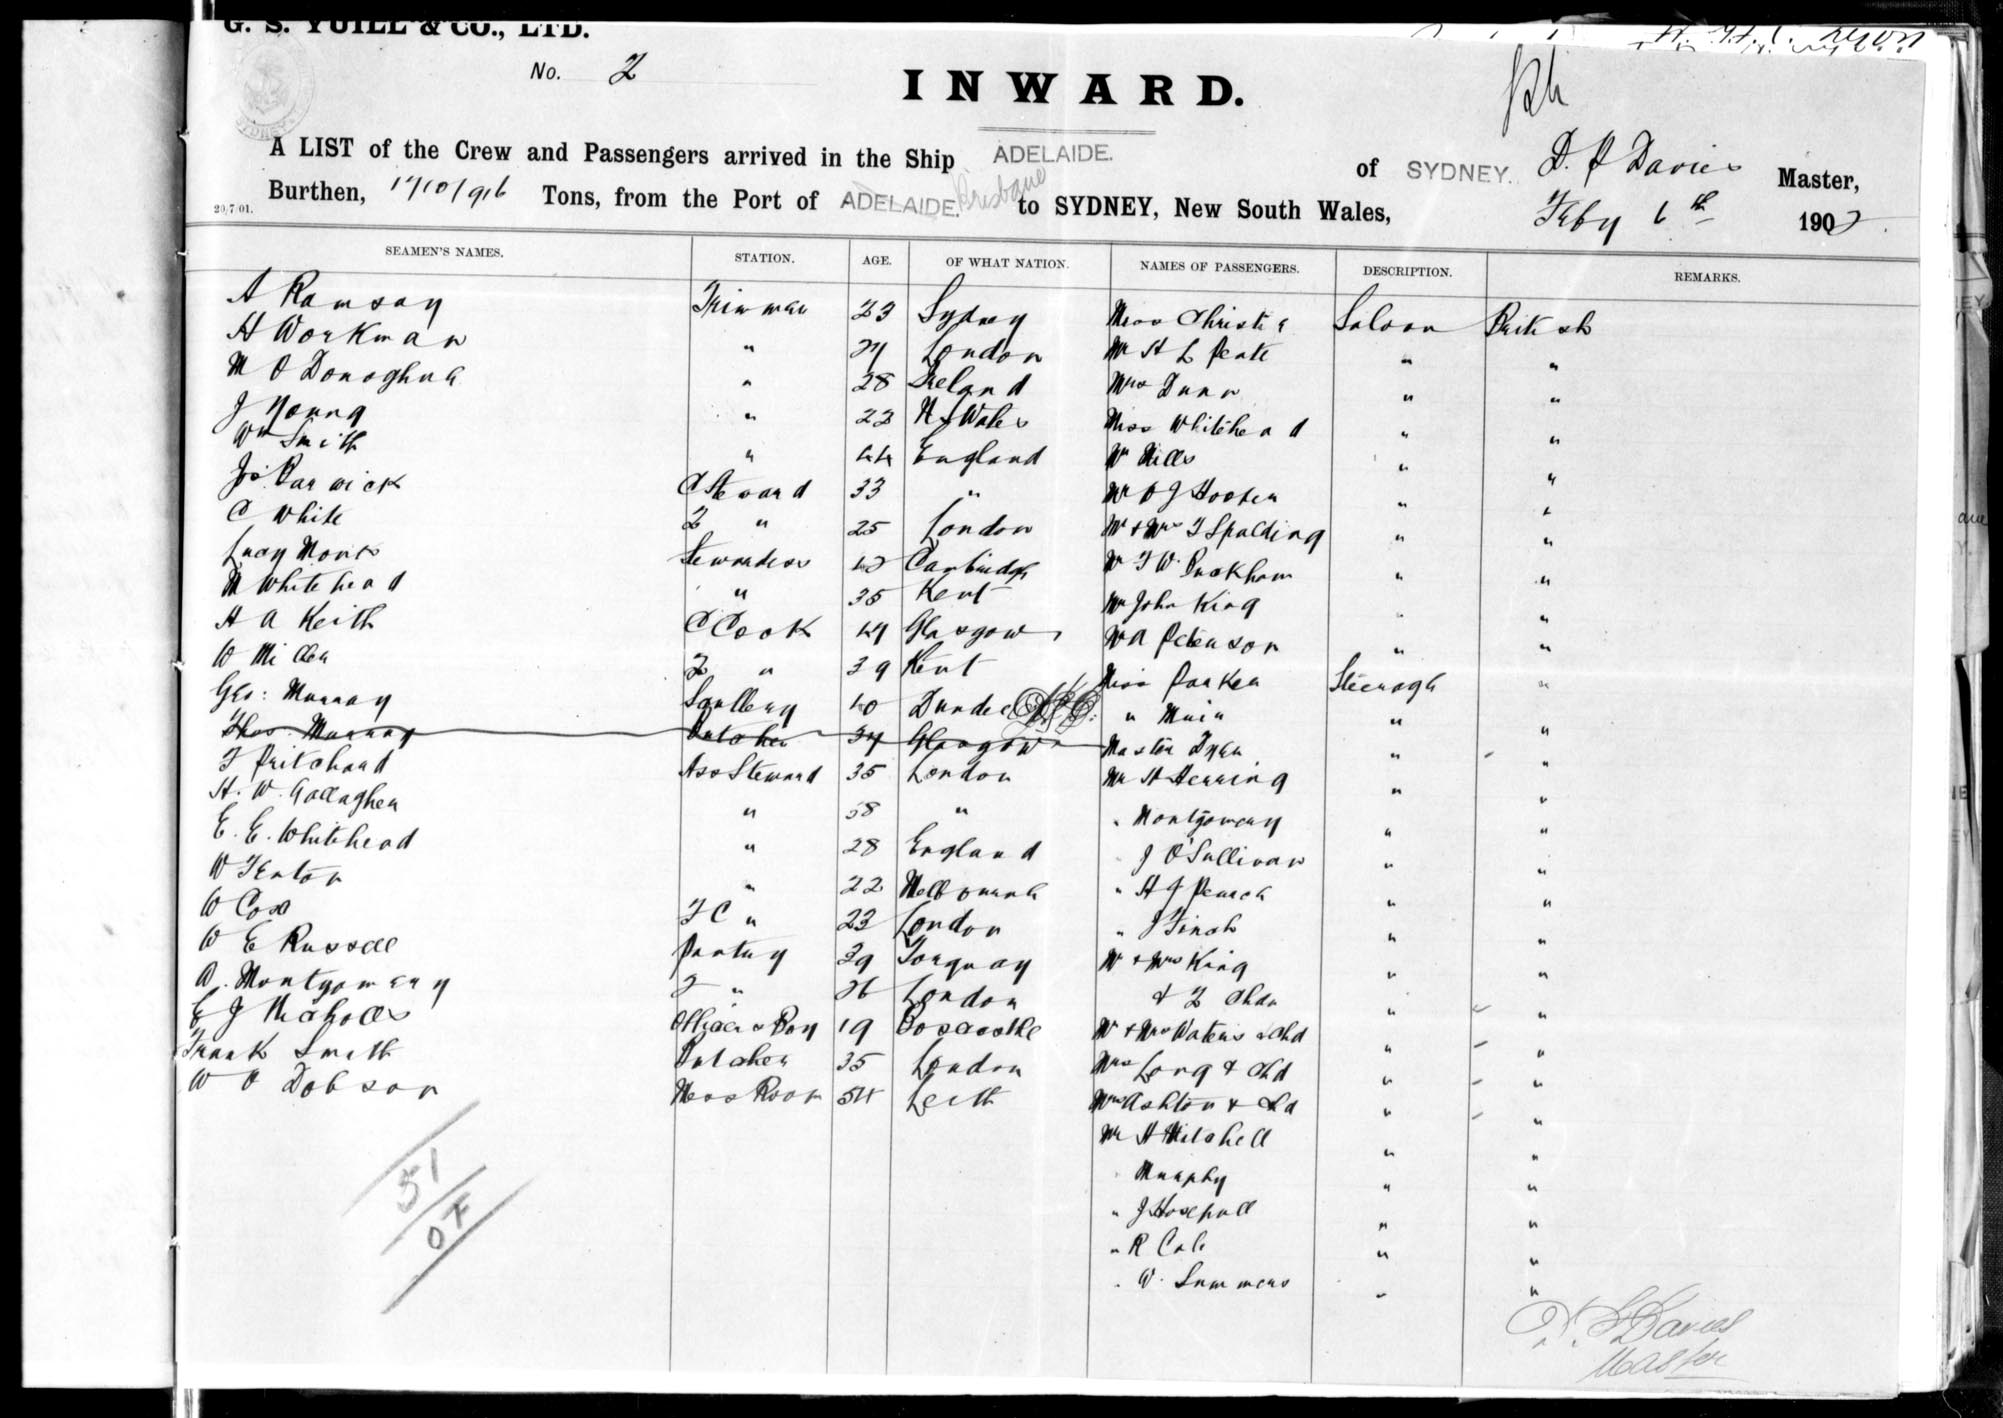 G. S. YUILL & CO., LTD.
No. 2
INWARD.
SYDNEY
A LIST of the Crew and Passengers arrived in the Ship ADELAIDE. of SYDNEY. Davies Master,
Burthen, 1710/916 Tons, from the Port of ADELAIDE. Brisbane to SYDNEY, New South Wales, Feby 6th 1902
20/7/01.
SEAMEN'S NAMES. STATION. AGE. OF WHAT NATION. NAMES OF PASSENGERS. DESCRIPTION. REMARKS.
A Ramsay Trimmer 23 Sydney Miss Christie Saloon British
H Workman " London Mr H L Peate " "
M O Donoghue " 28 Ireland Mrs Dunn " "
J Young " 22 Miss Whitehead " "
Wm Smith " 44 England Mr Mills " "
Jas Barwick C Steward 33 " Mr "
C White 2 " 25 London Mr & Mrs T Spalding " "
Lucy Monks Stewardess Cambridge Mr T W. Puckham " "
M Whitehead " 35 Kent Mr John King " "
H A Keith C Cook Glasgow W A Peterson " "
W Miller 2 " 39 Kent Miss Parker Steerage "
Geo: Murray Scullery 40 Dundee " Muir " "
Thos Murray Butcher 34 Glasgow Master Dyer " "
T Pritchard Ass Steward 35 London Mr H Herring " "
H. W. Gallagher " 58 " " Montgomery " "
E. E. Whitehead " 28 England J O'Sullivan " "
W Fenton " 22 Melbourne " H J Pearch " "
W Cox F C " 23 London " J Finch " "
W E Russell Pantry 39 Torquay Mr & Mrs King " "
A. Montgomery 2 " 26 London & 2 Chdn " "
E J Nicholls Officers Boy 19 Boscastle Mr & Mrs Waters & Chd " "
Frank Smith Butcher 35 London Mrs Long & Chd " "
W O Dobson Mess Room 54 Leith Mrs Ashton & " "
Mr H Mitchell " "
" Murphy " "
" J " "
" R Cole " "
" W. Summers " "
51
OF
Davies
Master